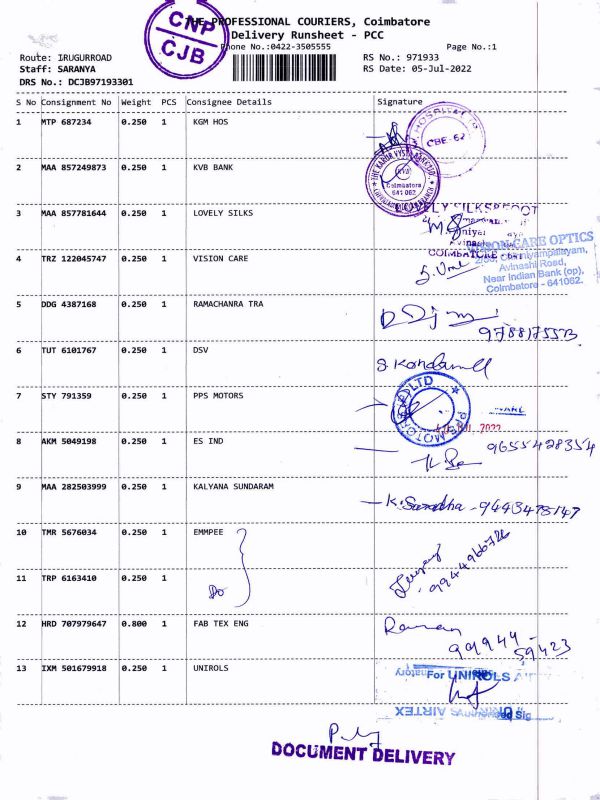 THE PROFESSIONAL COURIERS, Coimbatore
CNP
CJB
Delivery Runsheet - PCC
Phone No.:0422-3505555
Page No.:1
Route: IRUGURROAD
RS No.: 971933
Staff: SARANYA
RS Date: 05-Jul-2022
DRS No.: DCJB97193301
S No Consignment No Weight PCS Consignee Details Signature
1 MTP 687234 0.250 1 KGM HOS
HOSPITAL
CBE-62
2 MAA 857249873 0.250 1 KVB BANK
THE KARUR VYSYA BANK LTD
Coimbatore
641 062
3 MAA 857781644 0.250 1 LOVELY SILKS
LOVELY SILKS
COIMBATORE
4 TRZ 122045747 0.250 1 VISION CARE
VISION CARE OPTICS
Chinniyampalayam,
Avinashi Road,
Near Indian Bank (op),
Coimbatore - 641062.
5 DDG 4387168 0.250 1 RAMACHANRA TRA
6 TUT 6101767 0.250 1 DSV
7 STY 791359 0.250 1 PPS MOTORS
PPS MOTORS LTD
8 AKM 5049198 0.250 1 ES IND
9655428354
9 MAA 282503999 0.250 1 KALYANA SUNDARAM
10 TMR 5676034 0.250 1 EMMPEE
9944966726
11 TRP 6163410 0.250 1
Do
12 HRD 707979647 0.800 1 FAB TEX ENG
Raman
99944-
59423
13 IXM 501679918 0.250 1 UNIROLS
For UNIROLS
AIRTEX
DOCUMENT DELIVERY